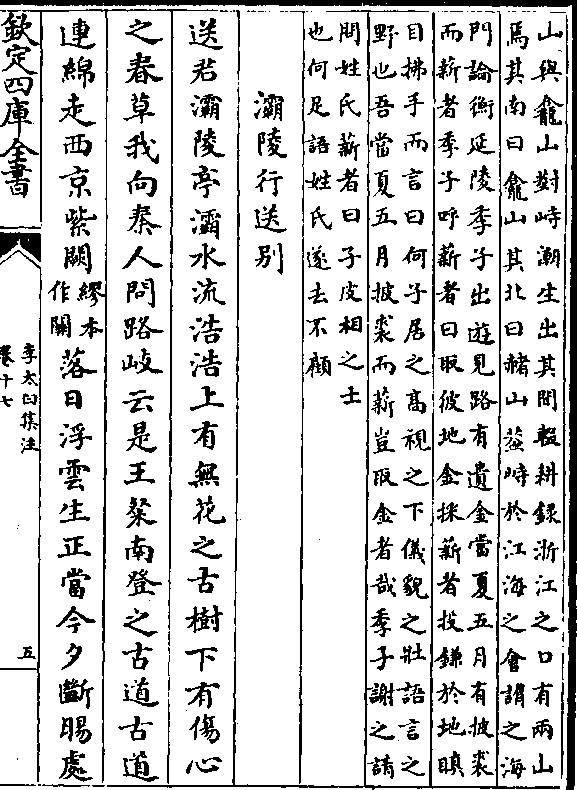 山與龕山對峙潮生出其間輟耕録浙江之口有兩山
焉其南曰龕山其北曰赭山蓋峙於江海之會謂之海
門論衡延陵季子出遊見路有遺金當夏五月有披裘
而薪者季子呼薪者曰取彼地金採薪者投鎌於地瞋
目拂手而言曰何子居之高視之下儀貌之壯語言之
野也吾當夏五月披裘而薪豈取金者哉季子謝之請
問姓氏薪者曰子皮相之士
也何足語姓氏遂去不顧
灞陵行送别
送君灞陵亭灞水流浩浩上有無花之古樹下有傷心
之春草我向秦人問路岐云是王粲南登之古道古道
連綿走西京紫闕繆本作關落日浮雲生正當今夕斷腸處
欽定四庫全書
李太白集注
卷十七
五